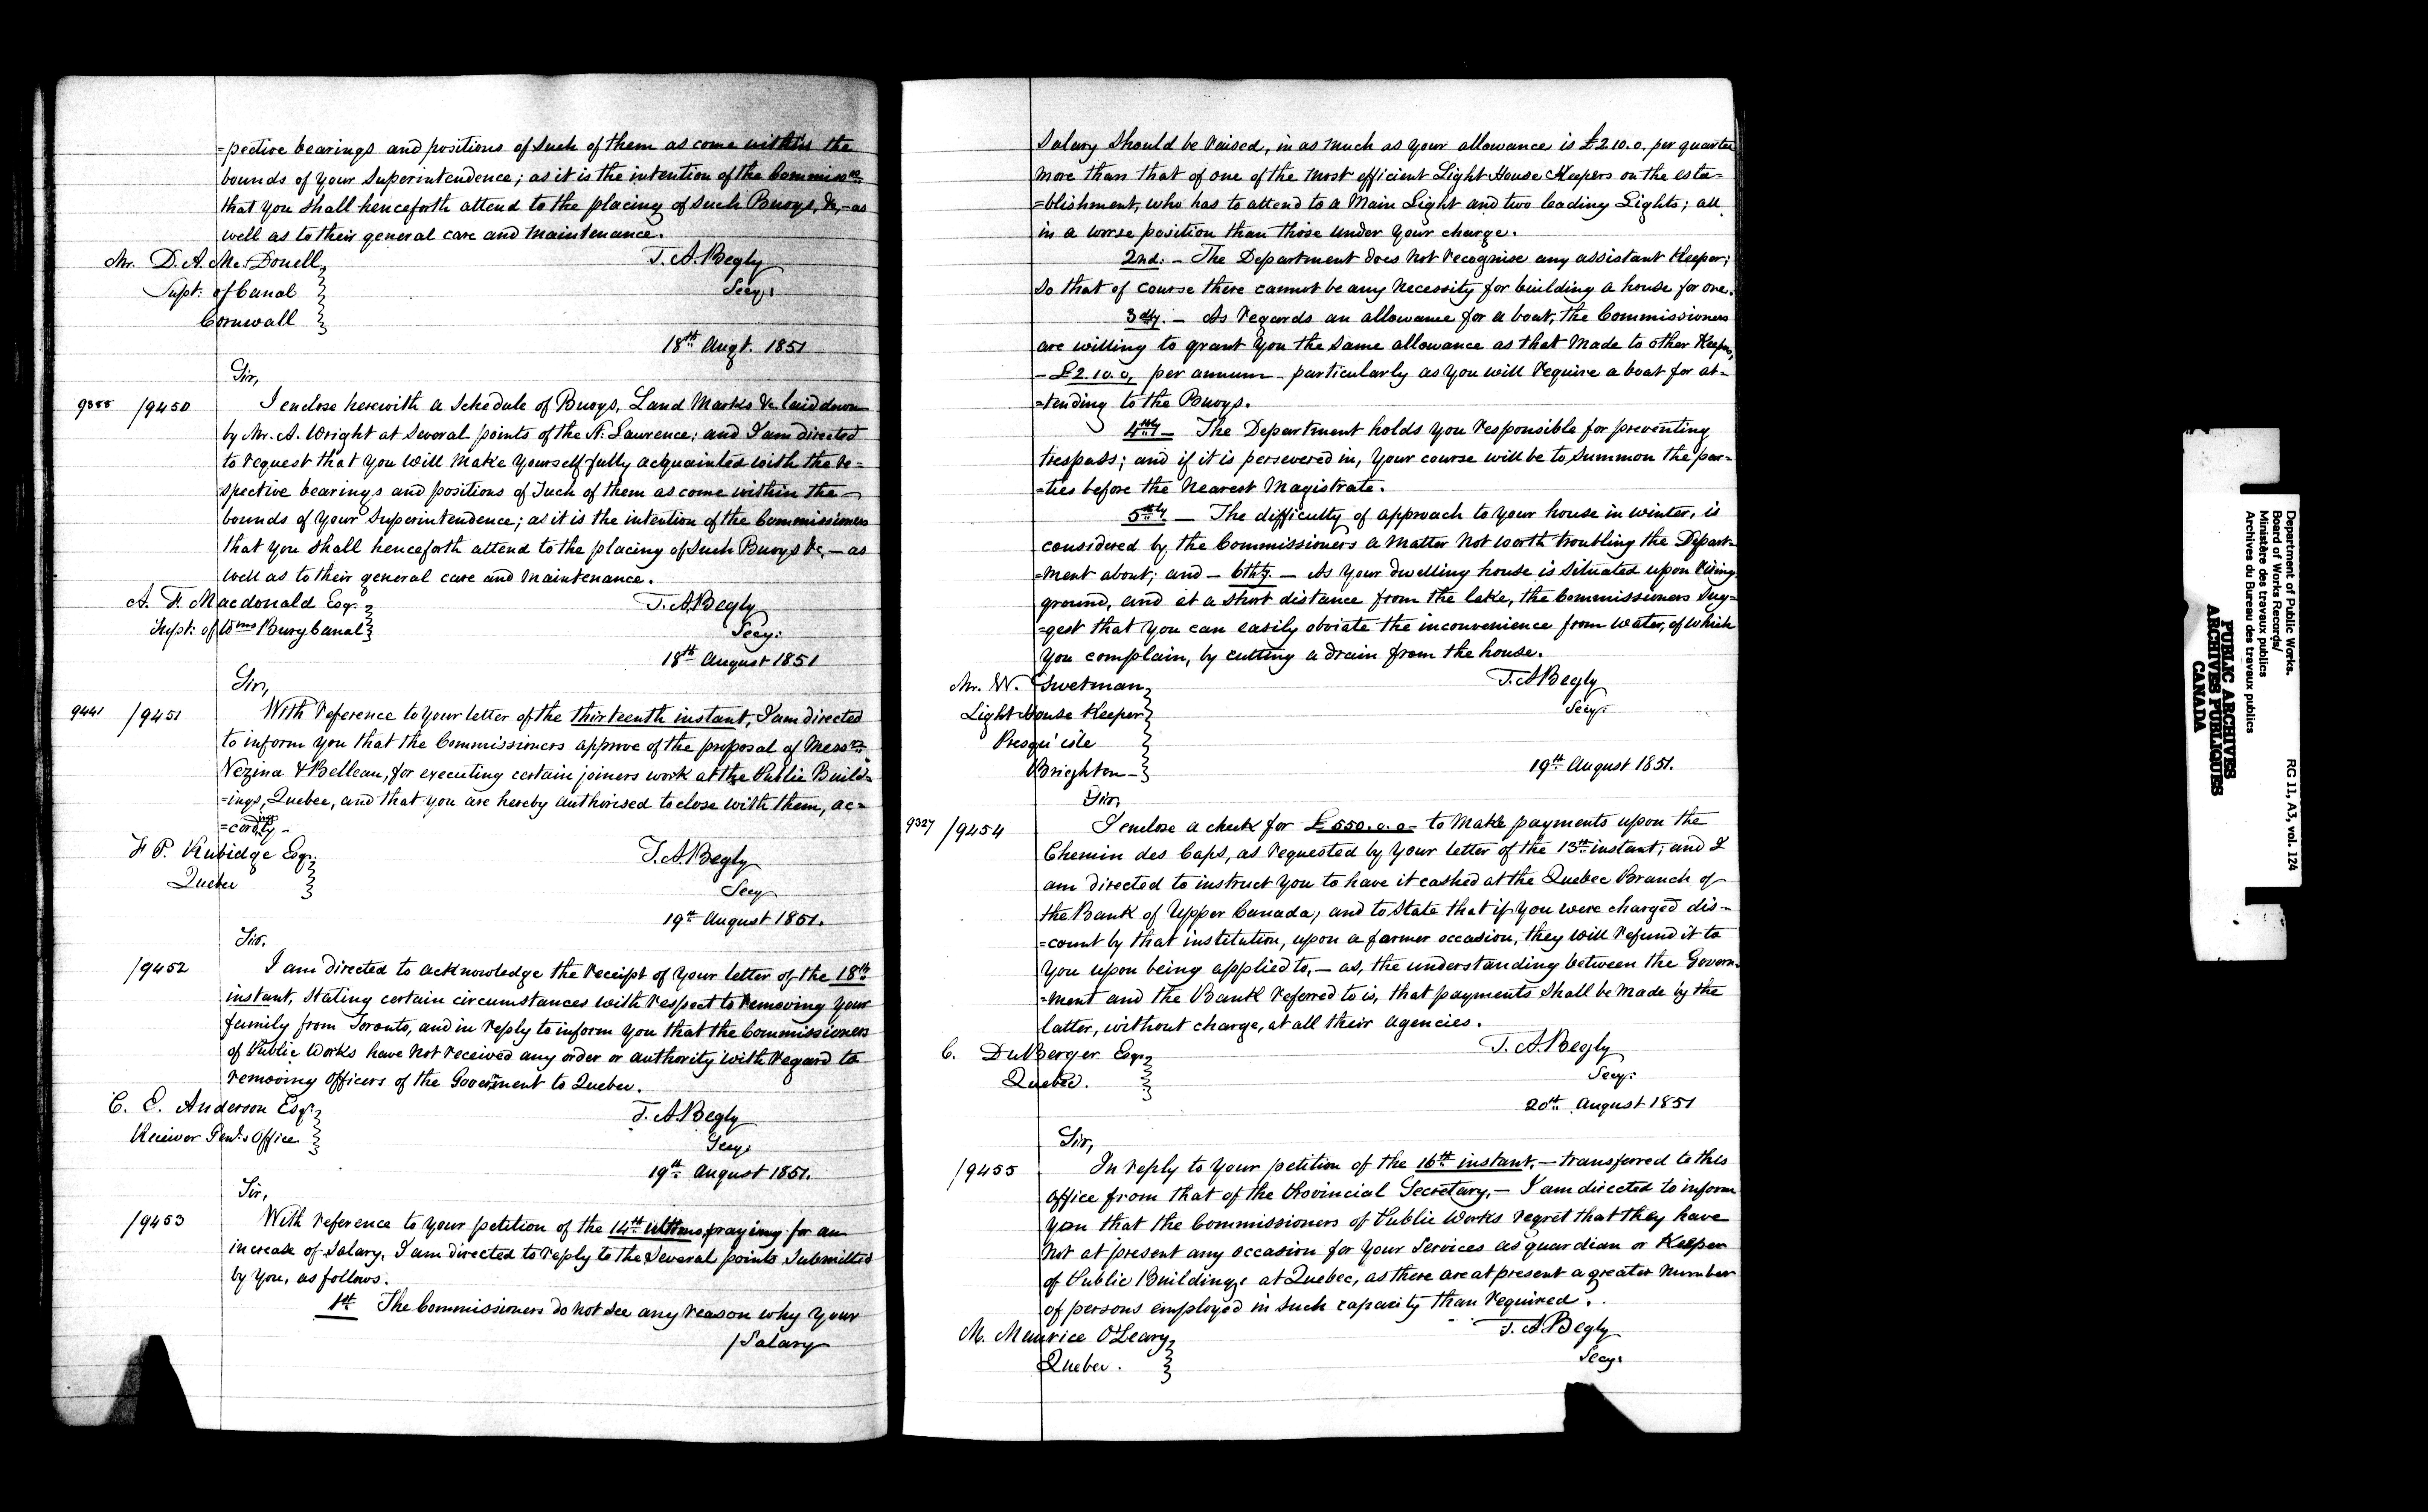 =pective bearings and positions of such of them as come within the
bounds of your Superintendence; as it is the intention of the Commissrs.
that you shall henceforth attend to the placing of such Buoys, &c, - as
well as to their general care and maintenance.
Mr. D. A. McDonell, T. A. Begly
Supt: of Canal Secy:
Cornwall
18th Augt. 1851
Sir,
9355 /9450 I enclose herewith a Schedule of Buoys, Land Marks &c. laid down
by Mr. A. Wright at several points of the St. Lawrence; and I am directed
to request that you will make yourself fully acquainted with the re=
spective bearings and positions of such of them as come within the -
bounds of your Superintendence; as it is the intention of the Commissioners
that you shall henceforth attend to the placing of such Buoys &c, - as
well as to their general care and maintenance.
A. F. Macdonald Esqr. T. A. Begly
Supt: of Wms Burg Canal Secy:
18th August 1851
Sir,
9441 /9451 With reference to your letter of the thirteenth instant, I am directed
to inform you that the Commissioners approve of the proposal of Messrs.
Vezina & Belleau, for executing certain joiners work at the Public Build=
=ings, Quebec, and that you are hereby authorised to close with them, ac=
=cordingly -
F. P. Rubidge Esqr. T. A. Begly
Quebec Secy
19th August 1851.
Sir.
/9452 I am directed to acknowledge the receipt of your letter of the 18th
instant, stating certain circumstances with respect to removing your
family from Toronto, and in reply to inform you that the Commissioners
of Public Works have not received any order or authority with regard to
removing officers of the Government to Quebec.
C. E. Anderson Esqr. T. A. Begly
Receiver Genl's Office Secy:
19th August 1851.
Sir,
/9453 With reference to your petition of the 14th ultimo, praying for an
increase of Salary, I am directed to reply to the several points submitted
by you, as follows.
1st The Commissioners do not see any reason why your
/Salary
Salary should be raised, in as much as your allowance is £2.10.0. per quarter
more than that of one of the most efficient Light House Keepers on the esta=
=blishment, who has to attend to a Main Light and two leading Lights; all
in a worse position than those under your charge.
2nd. - The Department does not recognise any assistant Keeper;
so that of course there cannot be any necessity for building a house for one.
3dly. - As regards an allowance for a boat, the Commissioners
are willing to grant you the same allowance as that made to other Keepers,
- £2.10.0, per annum - particularly as you will require a boat for at=
=tending to the Buoys.
4thly - The Department holds you responsible for preventing
trespass; and if it is persevered in, your course will be to summon the par=
=ties before the nearest Magistrate.
5thly. - The difficulty of approach to your house in winter, is
considered by the Commissioners a matter not worth troubling the Depart=
=ment about; and - 6thly. - As your dwelling house is situated upon rising
ground, and at a short distance from the lake, the Commissioners sug=
=gest that you can easily obviate the inconvenience from water, of which
you complain, by cutting a drain from the house.
Mr. W. Swetman, T. A. Begly
Light House Keeper Secy:
Presqu'isle
Brighton - 19th August 1851.
Sir,
9327 /9454 I enclose a check for £550.0.0 - to make payments upon the
Chemin des Caps, as requested by your letter of the 13th instant; and I
am directed to instruct you to have it cashed at the Quebec Branch of
the Bank of Upper Canada, and to state that if you were charged dis=
=count by that institution, upon a former occasion, they will refund it to
you upon being applied to, - as, the understanding between the Govern=
=ment and the Bank referred to is, that payments shall be made by the
latter, without charge, at all their agencies.
C. DuBerger Esqr. T. A. Begly
Quebec. Secy:
20th August 1851
Sir,
/9455 In reply to your petition of the 16th instant, - transferred to this
office from that of the Provincial Secretary, - I am directed to inform
you that the Commissioners of Public Works regret that they have
not at present any occasion for your services as guardian or Keeper
of Public Buildings at Quebec, as there are at present a greater number
of persons employed in such capacity than required.
M. Maurice O'Leary, T. A. Begly
Quebec. Secy:
Department of Public Works.
Board of Works Records/
Ministère des travaux publics
Archives du Bureau des travaux publics
RG 11, A3, vol. 124
PUBLIC ARCHIVES
ARCHIVES PUBLIQUES
CANADA